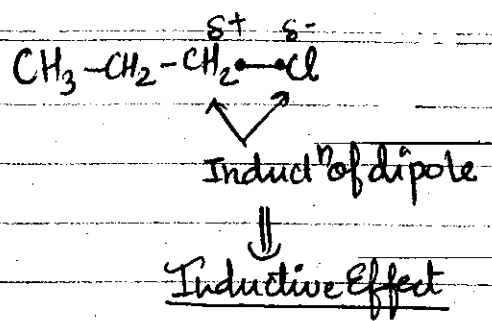 δ+ δ-
CH₃-CH₂-CH₂-Cl
Inductⁿ of dipole
⇓
Inductive Effect